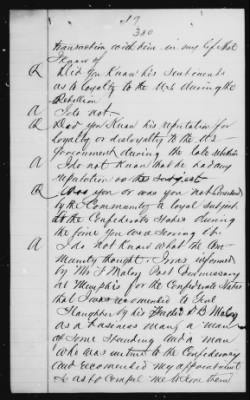 17
380
transaction with him in my life that
I know of
Q Did you know his sentiments
as to loyalty to the U.S. during the
Rebellion
A I do not
Q Did you know his reputation for
loyalty or disloyalty to the U.S.
Government during the late rebellion
A I do not know that he had any
reputation on the subject
Q Was you or was you not considered
by the Community a loyal subject
to the Confederate States during
the time you was serving it.
A I do not know what the Com
munity thought. I was informed
by Mr Maloy Post Commissary
at Memphis for the Confederate States
that I was recommended to
by his D B Maloy
as a business man, a man
of some standing and a man
who was to the Confederacy
and recommended my appointment
& as to compel me to